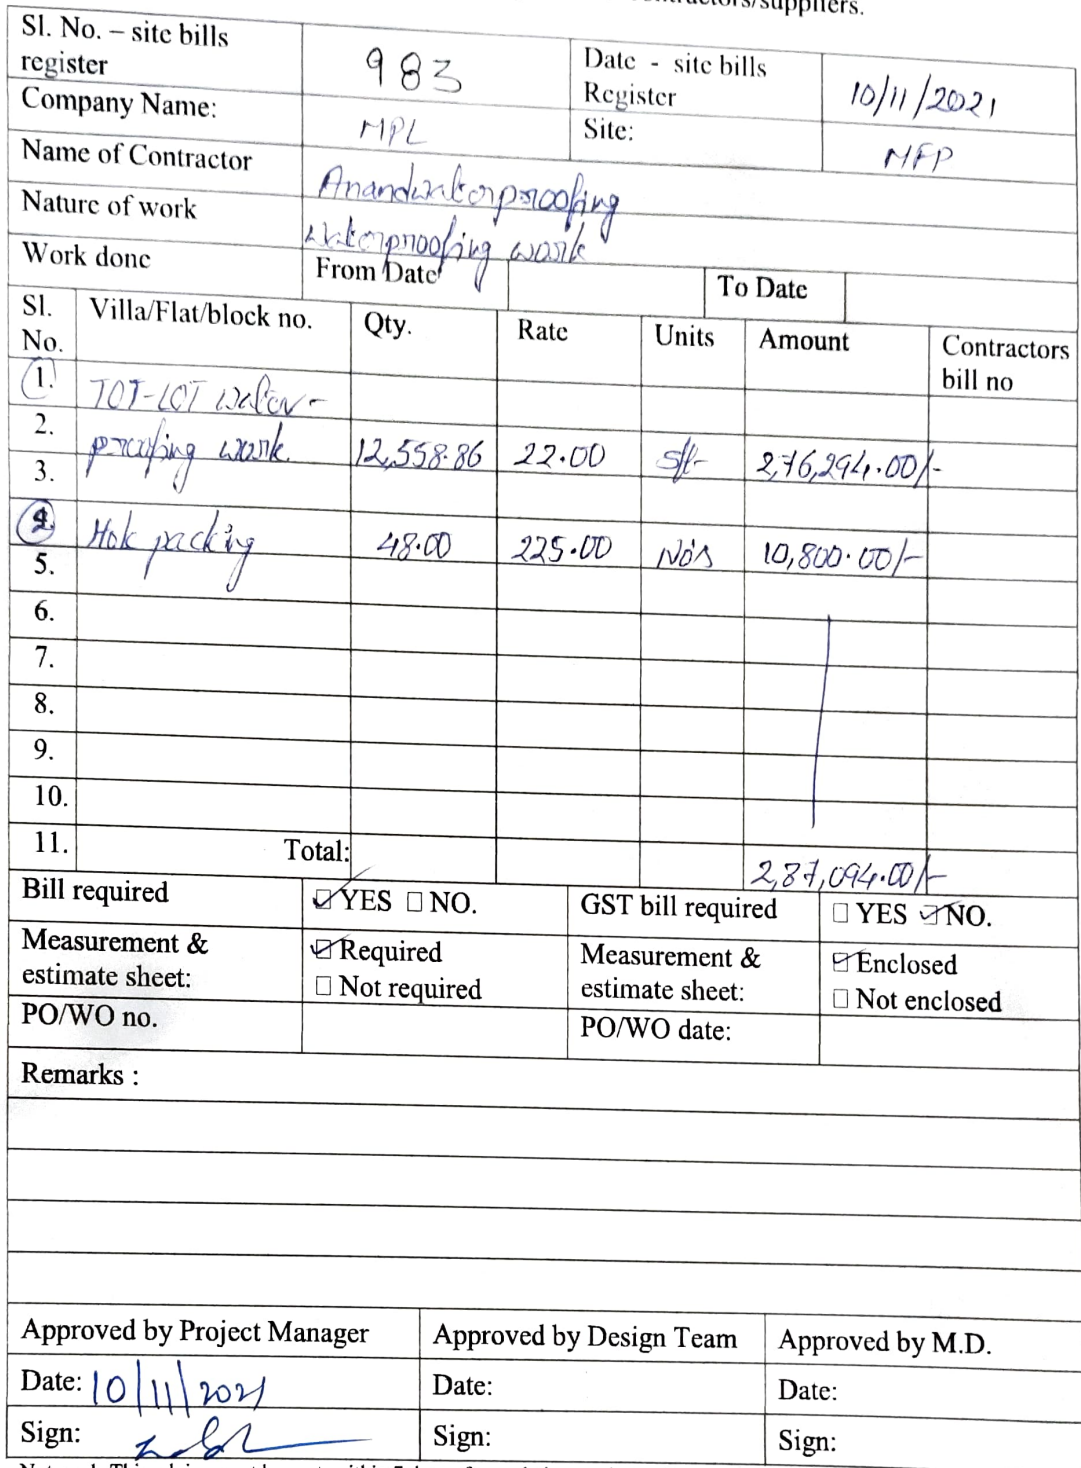 suppliers.
Sl. No. – site bills register 983 Date - site bills Register 10/11/2021
Company Name: MPL Site: MFP
Name of Contractor Anandwaterproofing
Nature of work Waterproofing work
Work done From Date To Date
Sl. No. Villa/Flat/block no. Qty. Rate Units Amount Contractors bill no
1. TOT-LOT Water-
2. proofing work 12,558.86 22.00 sft- 2,76,294.00/-
3.
2. Hole packing 48.00 225.00 No's 10,800.00/-
5.
6.
7.
8.
9.
10.
11. Total: 2,87,094.00/-
Bill required ☑ YES ☐ NO. GST bill required ☐ YES ☑ NO.
Measurement & estimate sheet: ☑ Required ☐ Not required Measurement & estimate sheet: ☑ Enclosed ☐ Not enclosed
PO/WO no. PO/WO date:
Remarks :
Approved by Project Manager Approved by Design Team Approved by M.D.
Date: 10/11/2021 Date: Date:
Sign: Sign: Sign: